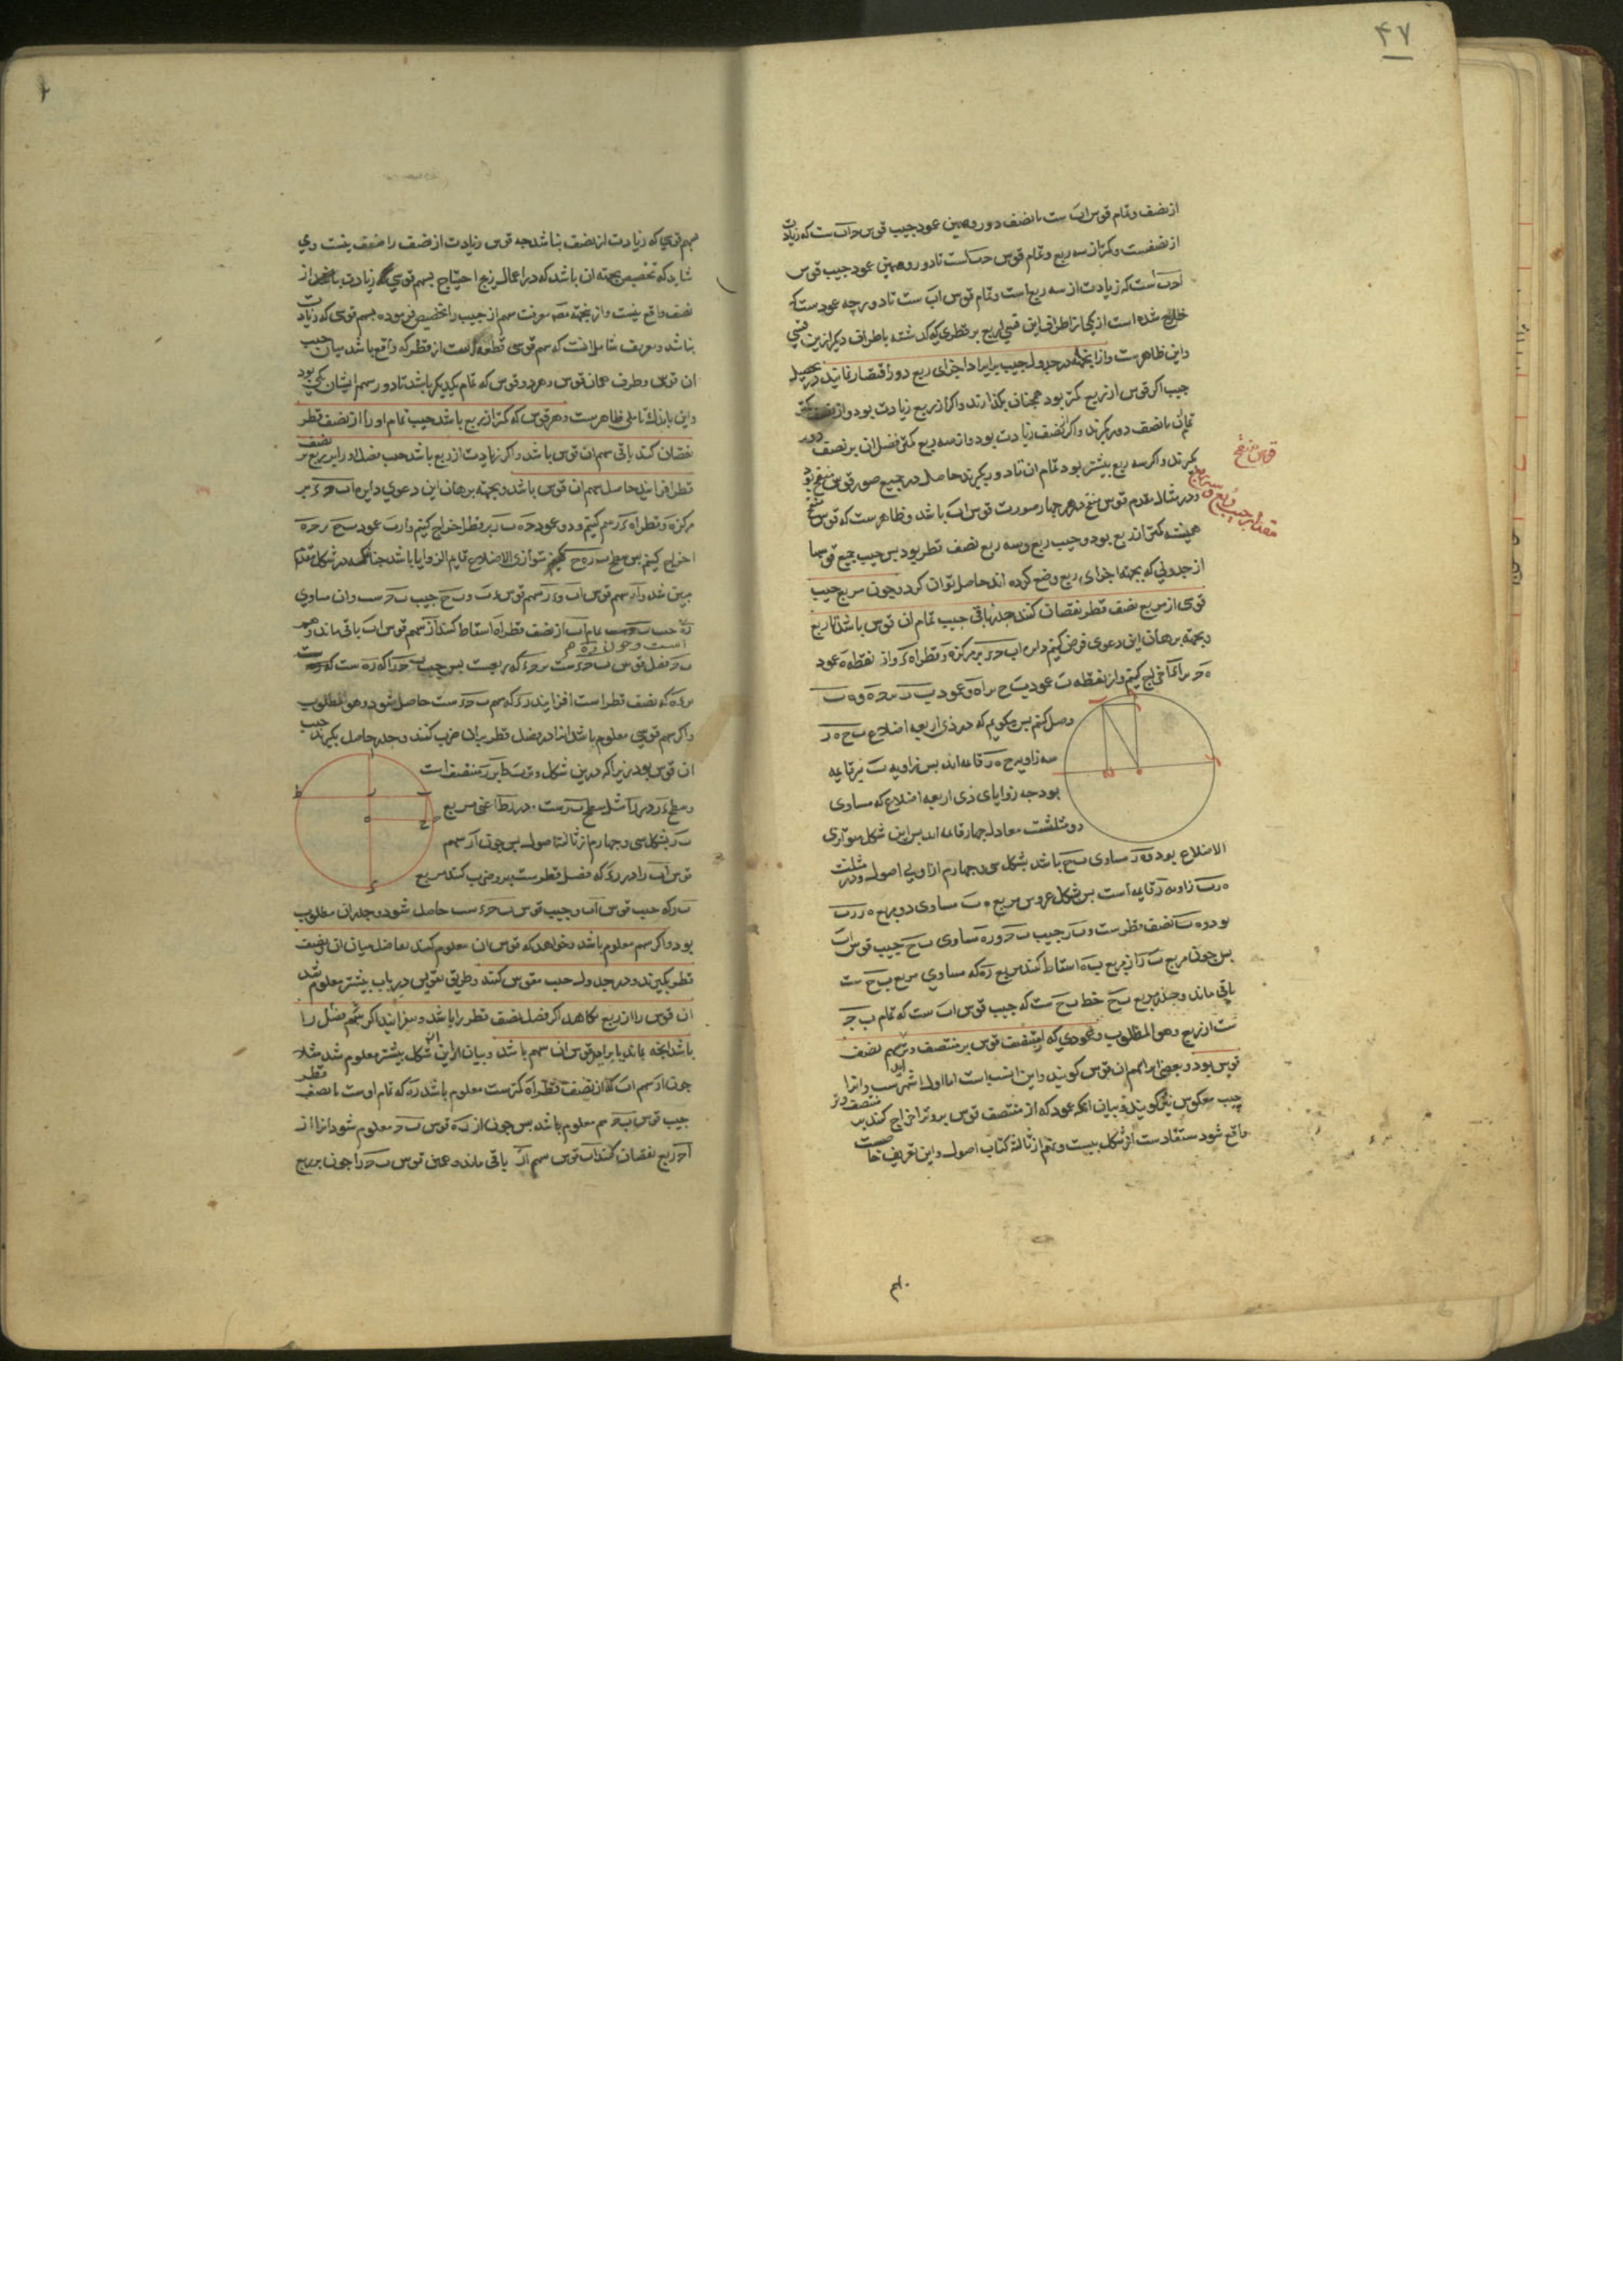 ۴۷
از نصف و تمام قوس اب ست با نصف دور و همین عمود جیب قوس حاب ست که زیادت
از نصفست و کمتر از سه ربع و تمام قوس ست تا دور و همین عمود جیب قوس
است که زیادت از سه ربع است و تمام قوس اب ست تا دور چه عمود ست که
خارج شده است از یکی از اطراف این قسی اربع بر قطری که گذشته باطراف دیگر ازین قسی
و این ظاهرست و از اینجهة در جدول جیب بر ایراد اجزای ربع دور اقتصار نمایند در تحصیل
جیب اگر قوس از ربع کمتر بود همچنان بگذارند و اگر از ربع زیادت بود و از نصف کمتر
تمام آن تا نصف دور بگیرند و اگر از نصف زیادت بود و از سه ربع کمتر فضل آن بر نصف دور
بگیرند و اگر سه ربع بیشتر بود تمام آن تا دور بگیرند حاصل در جمیع صور قوس منقح بود
و در مثال مقدم قوس منقح در هر چهار صورت قوس اب باشد و ظاهرست که قوس منقح
همیشه کمتر از ربع بود و جیب ربع و سه ربع نصف قطر بود پس جیب جمیع قوسها
از جدولی که بجهة اجزای ربع وضع کرده اند حاصل توان کرد و چون مربع جیب
قوسی از مربع نصف قطر نقصان کنند جذر باقی جیب تمام آن قوس باشد تا ربع
و بجهة برهان این دعوی فرض کنیم دایره اب حء بر مرکز ه و قطر اه ء و از نقطه ه عمود
ه ح بر اء اخراج کنیم و از نقطه ب عمود ب ح بر اه و عمود ب ر بر ح ه و ه ب
وصل کنیم پس میگویم که در ذی اربعه اضلاع ب ح ه ر
سه زاویه ح ه ر قایمه اند پس زاویه ب نیز قایمه
بود چه زوایای ذی اربعه اضلاع که مساوی
دو مثلثست معادل چهار قایمه اند پس این شکل متوازی
الاضلاع بود و ه ر مساوی ب ح باشد بشکل سی و چهارم از اولی اصول و در مثلث
ه ر ب زاویه ر قایمه است پس بشکل عروس مربع ه ب مساوی دو مربع ه ر ر ب
بود و ه ب نصف قطرست و ب ر جیب ب ح و ر ه مساوی ب ح جیب قوس اب
پس چون مربع ب ر از مربع ب ه اسقاط کنند مربع ر ه که مساوی مربع ب ح ست
باقی ماند و جذر مربع ب ح خط ب ح ست که جیب قوس اب ست که تمام ب ح
ست از ربع و هو المطلوب و عمودی که از منتصف قوس بر منتصف وتر سهم نصف
قوس بود و بعضی انرا سهم ان قوس گویند و این انسب است اما اول اشهرست و انرا
جیب معکوس نیز گویند و بیان انکه عمود که از منتصف قوس بر وتر اخراج کنند بر منتصف وتر
واقع شود مستفادست از شکل بیست و نهم از ثالثة کتاب اصول و این تعریف خاصست
قوس منقح
مقدار جیب ربع و سه ربع
سهم قوسی که زیادت از نصف نباشد چه قوس زیادت از نصف را نصف نیست و ی
شاید که تخصیص بجهة ان باشد که در اعمال زیج احتیاج بسهم قوسی که زیادت باشد از
نصف واقع نیست و از اینجهة معرفت سهم از جیب را تخصیص فرموده بسهم قوسی که زیادت
نباشد و تعریف شامل انست که سهم قوسی قطعه است از قطر که واقع باشد میان جیب
ان قوس و طرف همان قوس و هر دو قوس که تمام یکدیگر باشد تا دور سهم ایشان یکی بود
و این باندک تاملی ظاهرست و هر قوس که کمتر از ربع باشد جیب تمام او را از نصف قطر
نقصان کنند باقی سهم ان قوس باشد و اگر زیادت از ربع باشد جیب فضل او را بر ربع بر نصف
قطر افزایند حاصل سهم ان قوس باشد و بجهة برهان این دعوی دایره اب حء بر
مرکز ه و قطر اه ء رسم کنیم و دو عمود ح ه ب ر بر قطر اخراج کنیم و از ب عمود ب ح بر ح ه
اخراج کنیم پس سطح ب ر ه ح متوازی الاضلاع قایم الزوایا باشد چنانکه در شکل مقدم
مبین شد و ار سهم قوس اب و ء ر سهم قوس ء ب و ب ح جیب ب ح ست و ان مساوی
ر ه تمام اب از نصف قطر اه اسقاط کنند ار سهم قوس اب باقی ماند و هم
است و چون ر ه هم
ب ح فضل قوس ب ح ء ست بر ح ء که ربعست پس جیب ب ح را که ر ه ست
بر ء ه که نصف قطر است افزایند ر ء که سهم ب ح ء ست حاصل شود و هو المطلوب
و اگر سهم قوسی معلوم باشد انرا در فضل قطر بر ان ضرب کنند و جذر حاصل بگیرند جیب
ان قوس بود زیرا که درین شکل وتر ب ط بر ر منتصف است
و سطح ء ر در ر ا مثل سطح ب ر ست در ر ط اعنی مربع
ب ر بشکل سی و چهارم از ثالثة اصول پس چون ار سهم
قوس اب را در ر ء که فضل قطرست برو ضرب کنند مربع
ب ر که جیب قوس اب و جیب قوس ب ح ء ست حاصل شود و جذر ان مطلوب
بود و اگر سهم معلوم باشد و خواهند که قوس ان معلوم کنند تفاضل میان ان و نصف
قطر بگیرند و در جدول جیب مقوس کنند و طریق تقویس در باب پیشتر معلوم شد
ان قوس را از ربع بکاهند اگر فضل نصف قطر را باشد و بیفزایند اگر سهم فضل را
باشد انچه بماند یا براید قوس ان سهم باشد و بیان از این شکل پیشتر معلوم شد مثلا
چون ار سهم اب که از نصف قطر اه کمترست معلوم باشد ر ه که تمام اوست تا نصف قطر
جیب قوس ب ح هم معلوم باشد پس چون از ر ه قوس ب ح معلوم شود انرا از
ا ح ربع نقصان کنند اب قوس سهم ار باقی ماند و همین قوس ب ح را چون بر ربع